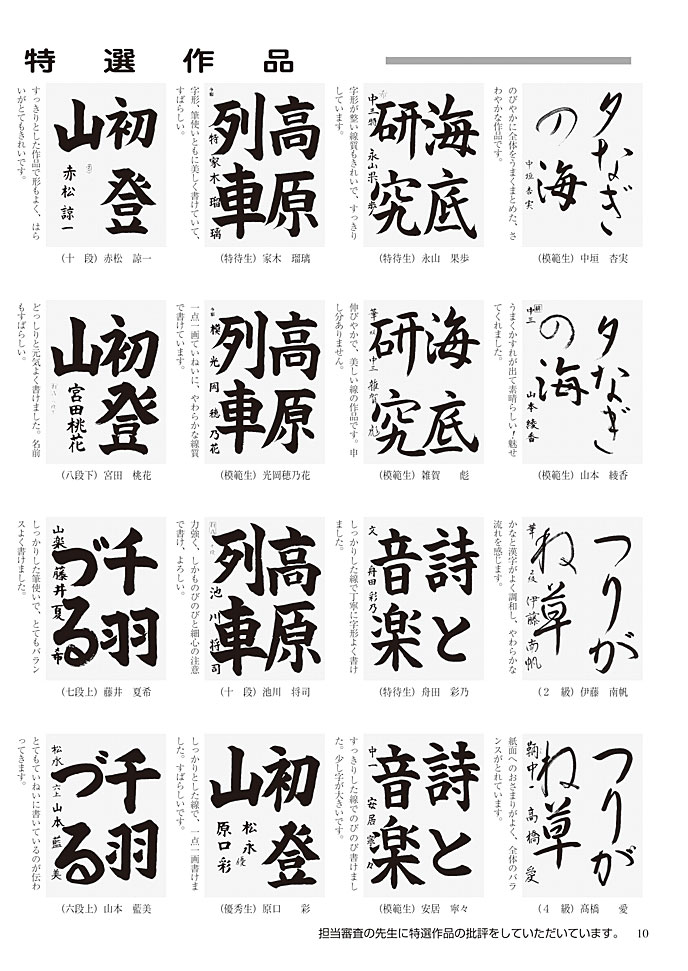 特選作品
夕なぎ
の海
中垣杏実
のびやかに全体をうまくまとめた、さ
わやかな作品です。
(模範生) 中垣 杏実
海底
研究
中三 特 永山果歩
字形が整い線質もきれいで、すっきり
しています。
(特待生) 永山 果歩
高原
列車
特 家木瑠璃
字形、筆使いともに美しく書けていて、
すばらしい。
(特待生) 家木 瑠璃
初登
山
赤松諒一
すっきりとした作品で形もよく、はら
いがとてもきれいです。
(十 段) 赤松 諒一
夕なぎ
の海
中三
山本綾香
うまくかすれが出て素晴らしい！魅せ
てくれました。
(模範生) 山本 綾香
海底
研究
中三 雑賀彪
伸びやかで、美しい線の作品です。申
し分ありません。
(模範生) 雑賀 彪
高原
列車
模 光岡穂乃花
一点一画ていねいに、やわらかな線質
で書けています。
(模範生) 光岡穂乃花
初登
山
宮田桃花
どっしりと元気よく書けました。名前
もすばらしい。
(八段下) 宮田 桃花
つりが
ね草
伊藤南帆
かなと漢字がよく調和し、やわらかな
流れを感じます。
(2 級) 伊藤 南帆
詩と
音楽
文 舟田彩乃
しっかりした線で丁寧に字形よく書け
ました。
(特待生) 舟田 彩乃
高原
列車
池川将司
力強く、しかものびのびと細心の注意
で書け、よろしい。
(十 段) 池川 将司
千羽
づる
山楽 藤井夏希
しっかりした筆使いで、とてもバラン
スよく書けました。
(七段上) 藤井 夏希
つりが
ね草
鞆中一 高橋愛
紙面へのおさまりがよく、全体のバラ
ンスがとれています。
(4 級) 髙橋 愛
詩と
音楽
中一 安居寧々
すっきりした線でのびのび書けまし
た。少し字が大きいです。
(模範生) 安居 寧々
初登
山
松永 優
原口彩
しっかりとした線で、一点一画書けま
した。すばらしいです。
(優秀生) 原口 彩
千羽
づる
松永 六上 山本藍美
とてもていねいに書いているのが伝わ
ってきます。
(六段上) 山本 藍美
担当審査の先生に特選作品の批評をしていただいています。 10